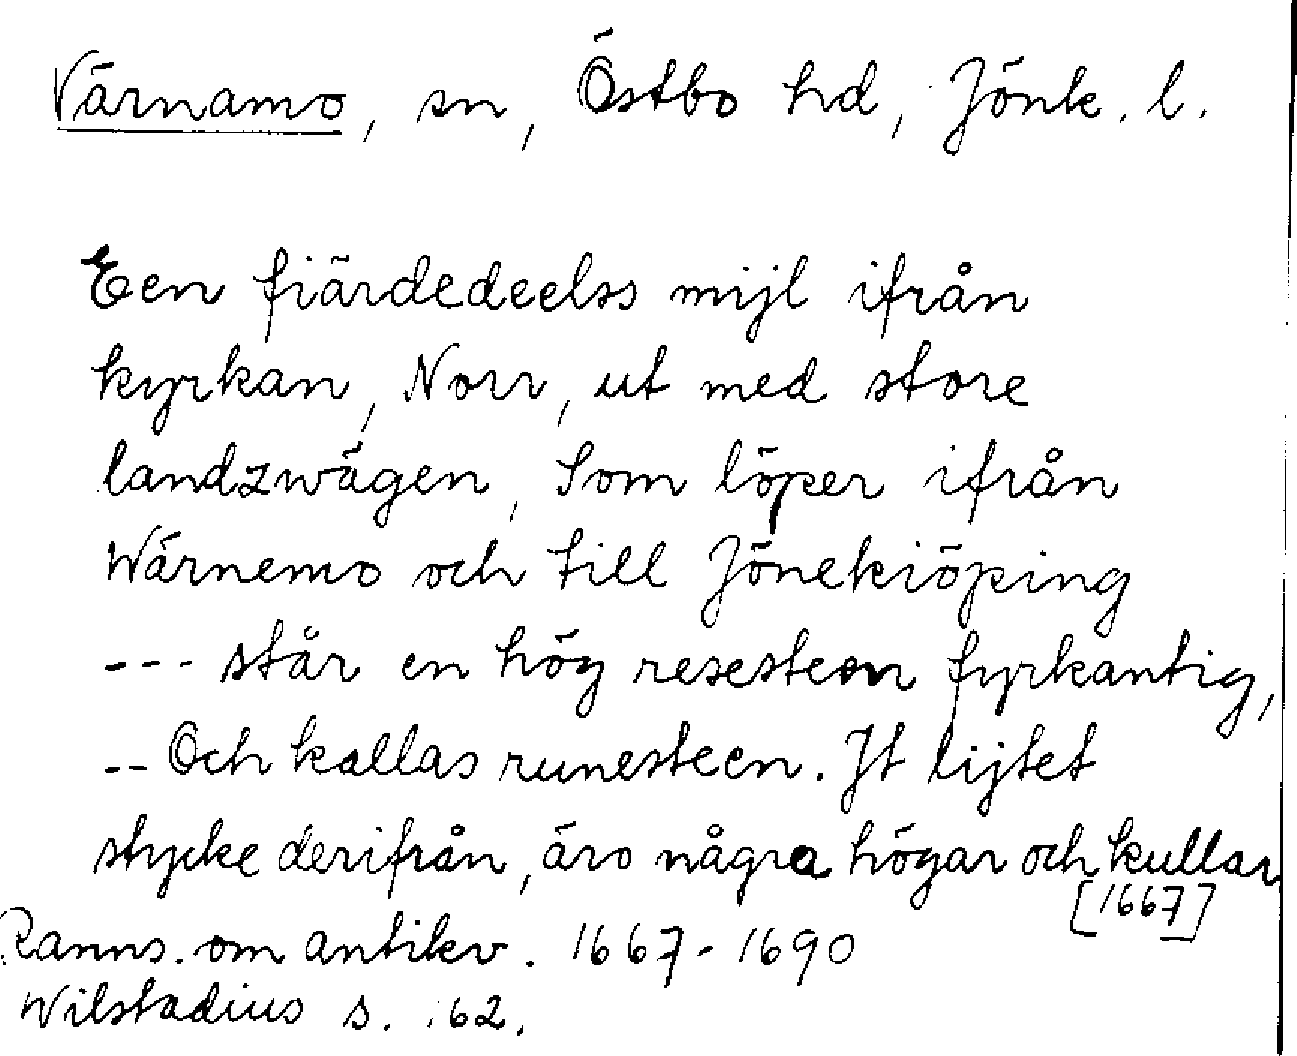 Värnamo, sn, Östbo hd, Jönk. l.
Een fiärdedeelss mijl ifrån
kyrkan, Norr, ut med store
landzwägen, Som löper ifrån
Wärnemo och till Jönekiöping
--- står en hög resesteen fyrkantig,
-- Och kallas runesteen. Jt lijtet
stycke derifrån, äro några högar och kullar
[1667]
Ranns. om antikv. 1667-1690
Wilstadius s. 62.